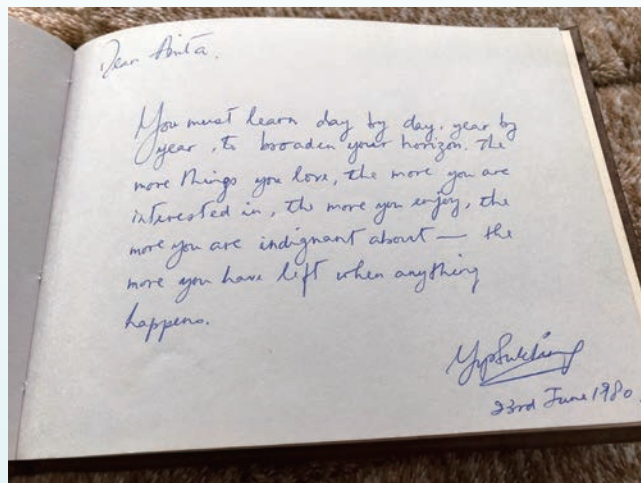 Dear Anita.
You must learn day by day, year by
year, to broaden your horizon. The
more things you love, the more you are
interested in, the more you enjoy, the
more you are indignant about — the
more you have left when anything
happens.
23rd June 1980